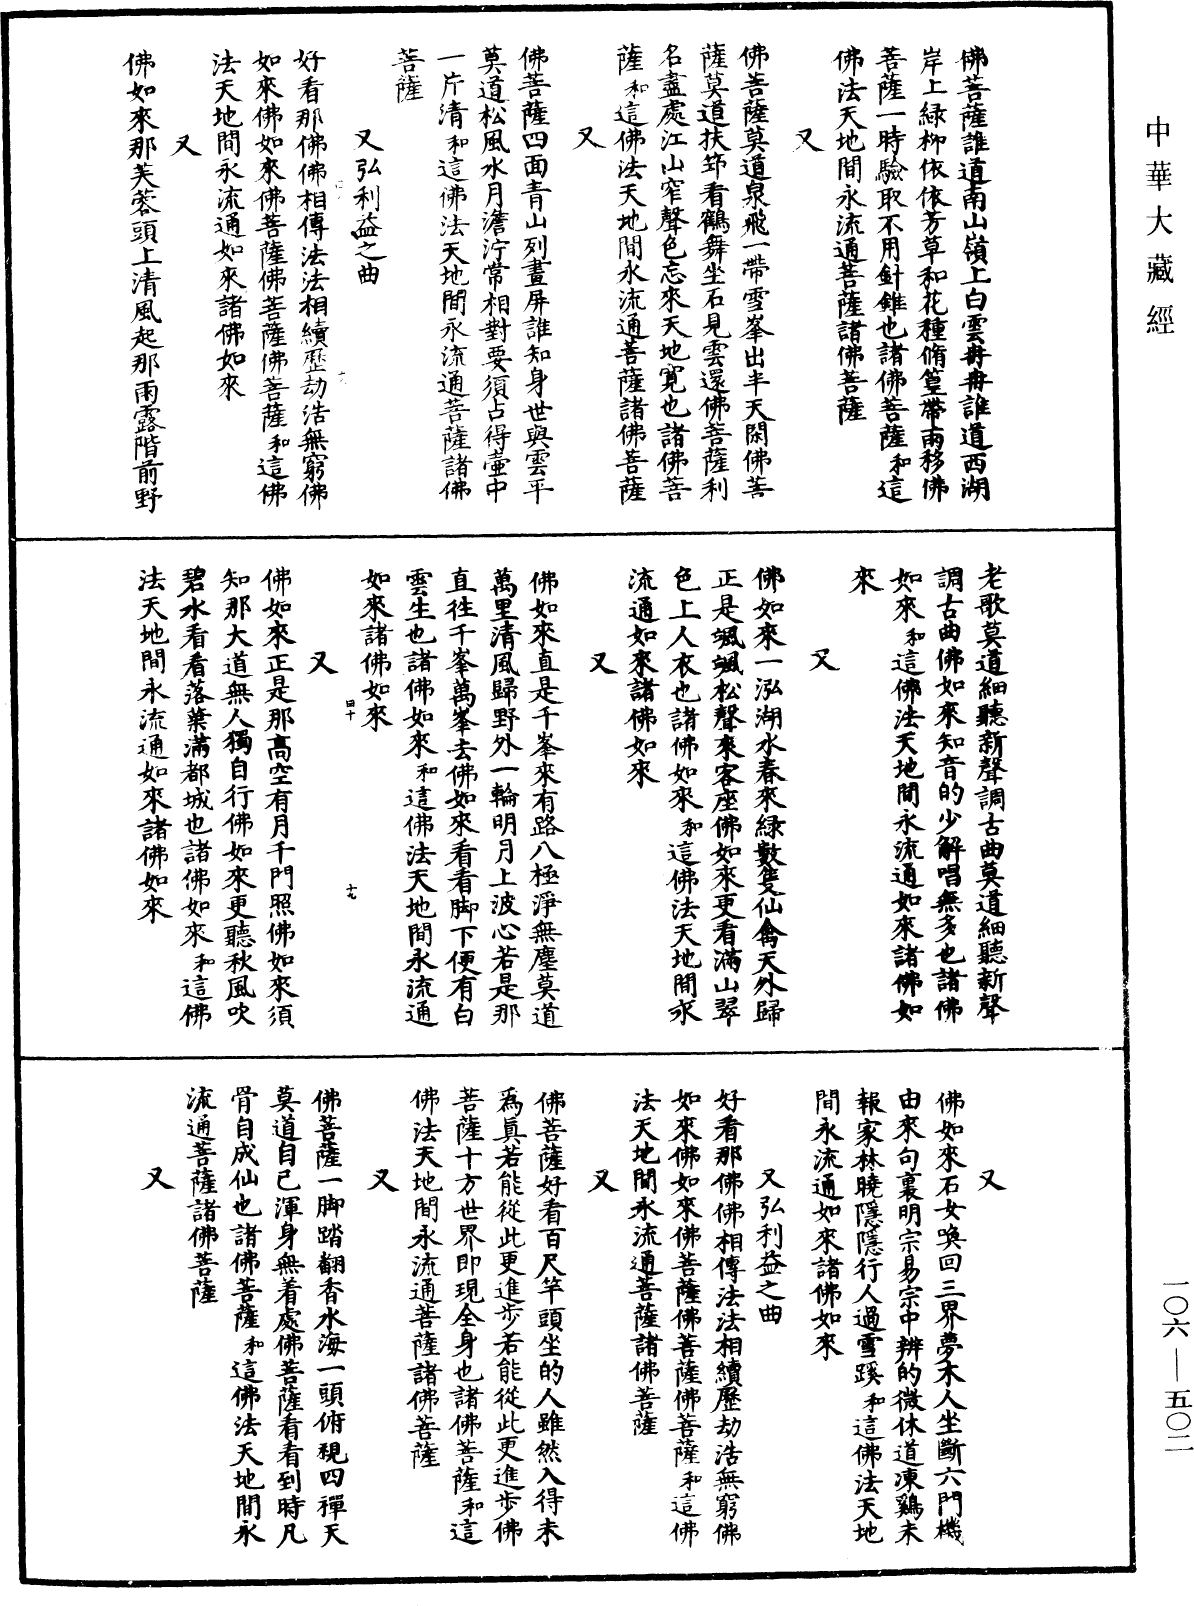 中華大藏經
佛菩薩誰道南山嶺上白雲冉冉誰道西湖
岸上綠柳依依芳草和花種脩篁帶雨移佛
菩薩一時驗取不用針錐也諸佛菩薩和這
佛法天地間永流通菩薩諸佛菩薩
又
佛菩薩莫道泉飛一帶雪峯出半天閑佛菩
薩莫道扶筇看鶴舞坐石見雲還佛菩薩利
名盡處江山窄聲色忘來天地寬也諸佛菩
薩和這佛法天地間永流通菩薩諸佛菩薩
又
佛菩薩四面青山列畫屏誰知身世與雲平
莫道松風水月澹泞常相對要須占得壷中
一片清和這佛法天地間永流通菩薩諸佛
菩薩
又弘利益之曲
好看那佛佛相傳法法相續歷劫浩無窮佛
如來佛如來佛菩薩佛菩薩佛菩薩和這佛
法天地間永流通如來諸佛如來
又
佛如來那芙蓉頭上清風起那雨露階前野
老歌莫道細聽新聲調古曲莫道細聽新聲
調古曲佛如來知音的少解唱無多也諸佛
如來和這佛法天地間永流通如來諸佛如
來
又
佛如來一泓湖水春來綠數隻仙禽天外歸
正是颯颯松聲來客座佛如來更看滿山翠
色上人衣也諸佛如來和這佛法天地間永
流通如來諸佛如來
又
佛如來直是千峯來有路八極淨無塵莫道
萬里清風歸野外一輪明月上波心若是那
直往千峯萬峯去佛如來看看脚下便有白
雲生也諸佛如來和這佛法天地間永流通
如來諸佛如來
四十
十九
又
佛如來正是那高空有月千門照佛如來須
知那大道無人獨自行佛如來更聽秋風吹
碧水看看落葉滿都城也諸佛如來和這佛
法天地間永流通如來諸佛如來
又
佛如來石女喚回三界夢木人坐斷六門機
由來句裏明宗易宗中辨的微休道凍鷄未
報家林曉隱隱行人過雪蹊和這佛法天地
間永流通如來諸佛如來
又弘利益之曲
好看那佛佛相傳法法相續歷劫浩無窮佛
如來佛如來佛菩薩佛菩薩佛菩薩和這佛
法天地間永流通菩薩諸佛菩薩
又
佛菩薩好看百尺竿頭坐的人雖然入得未
爲眞若能從此更進步若能從此更進步佛
菩薩十方世界即現全身也諸佛菩薩和這
佛法天地間永流通菩薩諸佛菩薩
又
佛菩薩一脚踏翻香水海一頭俯視四禪天
莫道自己渾身無着處佛菩薩看看到時凡
骨自成仙也諸佛菩薩和這佛法天地間永
流通菩薩諸佛菩薩
又
一〇六—五〇二